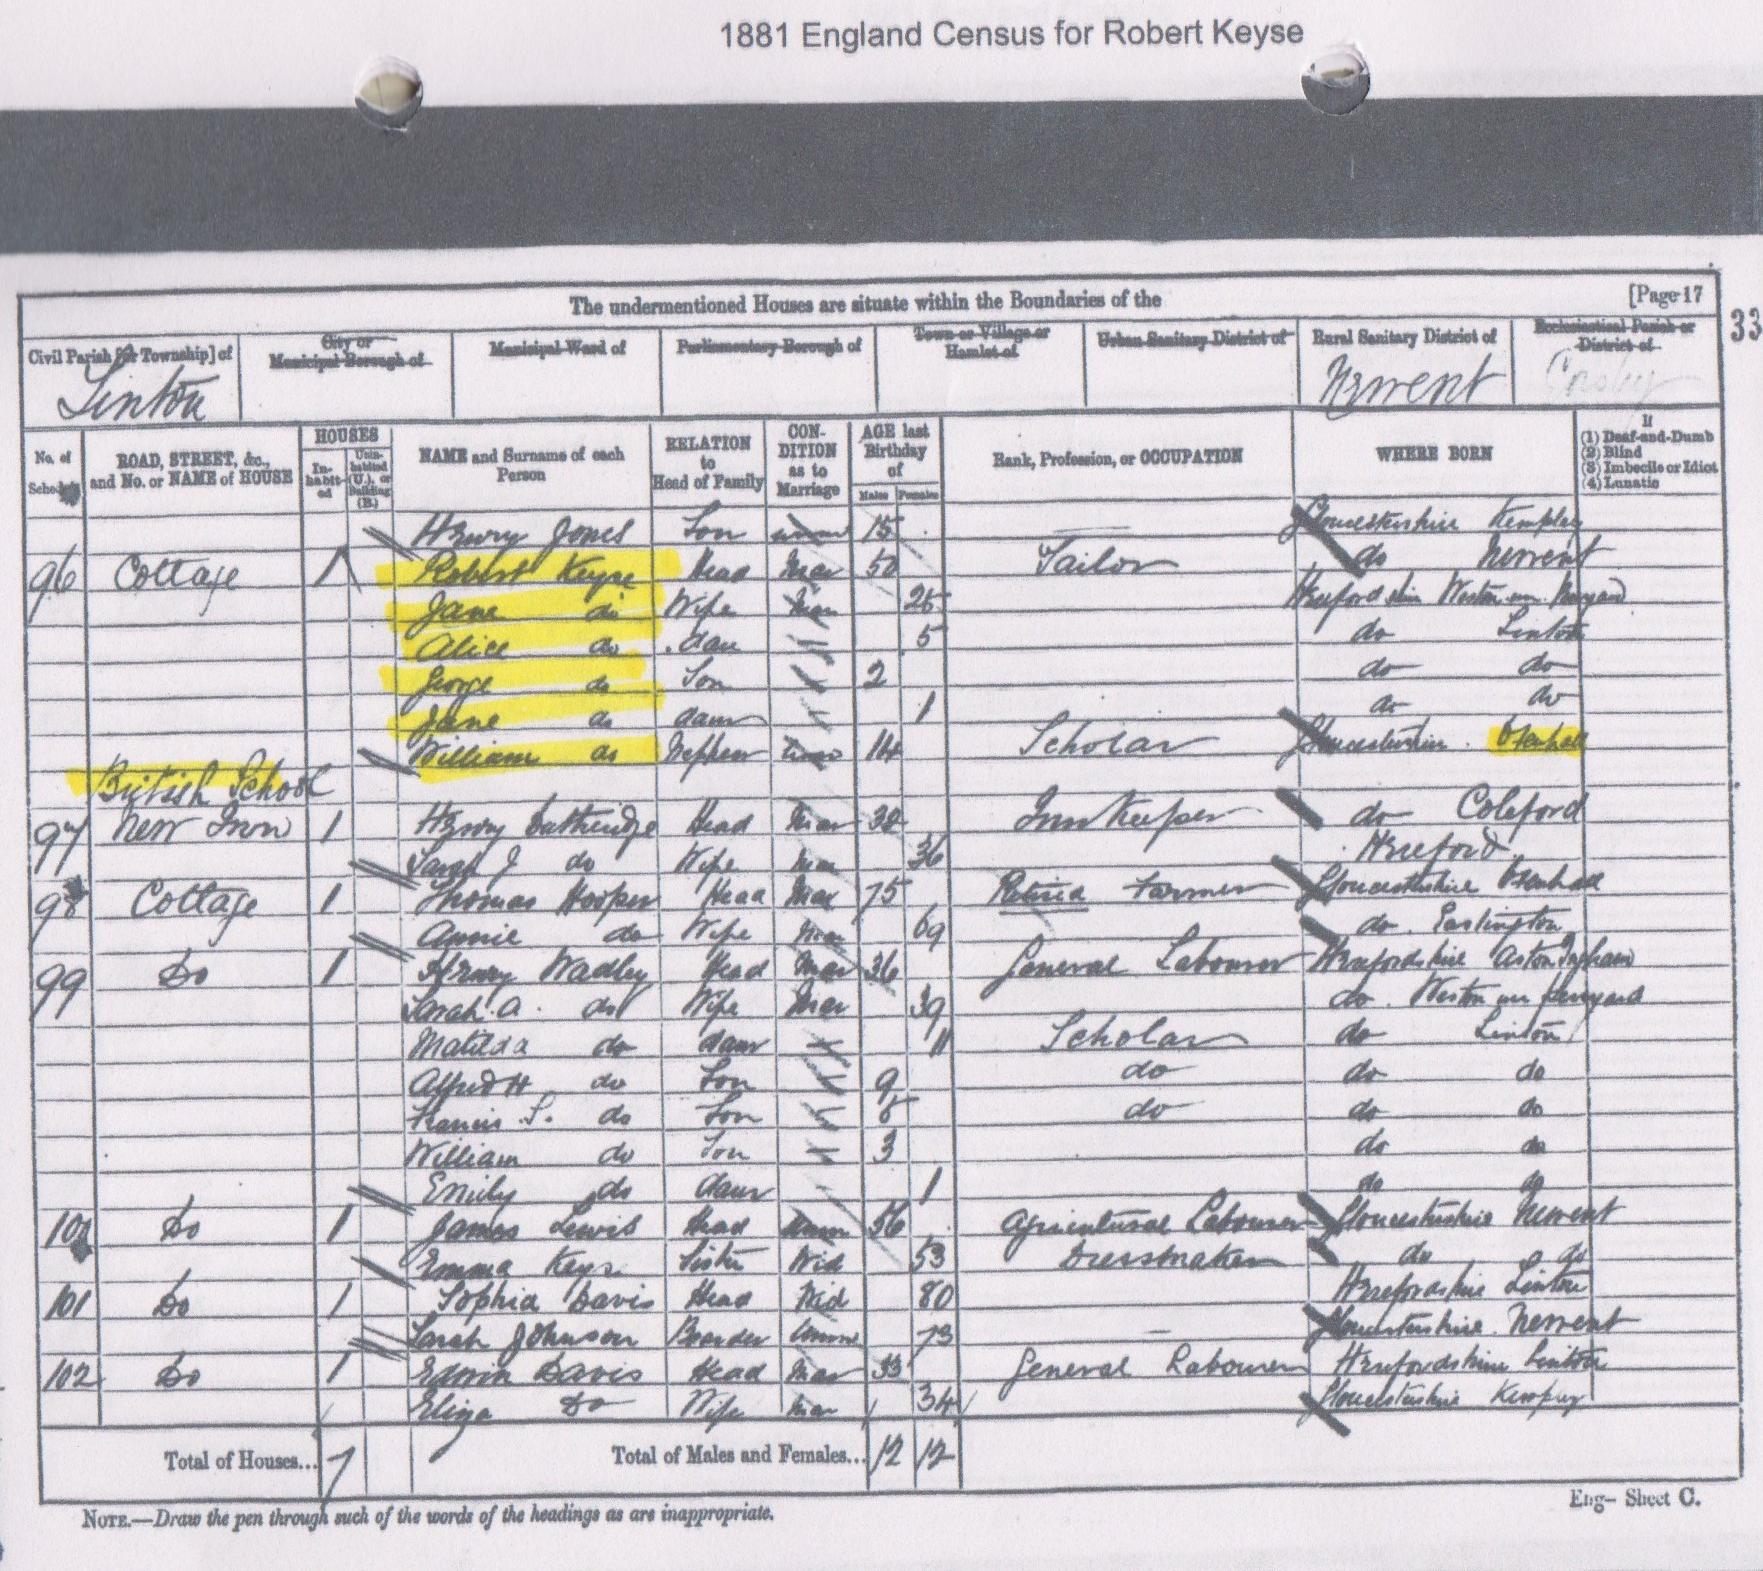 1881 England Census for Robert Keyse
The undermentioned Houses are situate within the Boundaries of the [Page 17
33
Civil Parish [or Township] of City or Municipal Borough of Municipal Ward of Parliamentary Borough of Town or Village or Hamlet of Urban Sanitary District of Rural Sanitary District of Ecclesiastical Parish or District of
Linton Newent
No. of Schedule ROAD, STREET, &c., and No. or NAME of HOUSE HOUSES Inhabited Uninhabited (U.), or Building (B.) NAME and Surname of each Person RELATION to Head of Family CONDITION as to Marriage AGE last Birthday of Males Females Rank, Profession, or OCCUPATION WHERE BORN If (1) Deaf-and-Dumb (2) Blind (3) Imbecile or Idiot (4) Lunatic
Henry Jones Son 15 Gloucestershire Kempley
96 Cottage 1 Robert Keyse Head Mar 50 Tailor do Newent
Jane do Wife Mar 25 Herefordshire Weston
Alice do dau 5 do Linton
George do Son 2 do do
Jane do daur 1 do do
William do Nephew 14 Scholar Gloucestershire Oxenhall
British School
97 New Inn 1 Henry Head Mar 38 Inn Keeper do Coleford
Sarah J do Wife Mar 36 Hereford
98 Cottage 1 Thomas Hooper Head Mar 75 Retired Farmer Gloucestershire Oxenhall
Annie do Wife Mar 69 do Eastington
99 Do 1 Henry Wadley Head Mar 36 General Labourer Herefordshire Aston Ingham
Sarah A. do Wife Mar 39 do Weston un Penyard
Matilda do daur 11 Scholar do Linton
Alfred H do Son 9 do do do
Francis S. do Son 5 do do do
William do Son 3 do do
Emily do daur 1 do do
Do 1 James Lewis Head 56 Agricultural Labourer Gloucestershire Newent
Emma Keyse Sister Wid 53 Dressmaker do do
101 Do 1 Sophia Davis Head Wid 80 Herefordshire Linton
Sarah Johnson Boarder 73 Gloucestershire Newent
102 Do 1 Edwin Davis Head Mar 33 General Labourer Herefordshire Linton
Eliza Do Wife Mar 34 Gloucestershire Kempley
Total of Houses... 7 Total of Males and Females... 12 12
NOTE.—Draw the pen through such of the words of the headings as are inappropriate.
Eng— Sheet C.